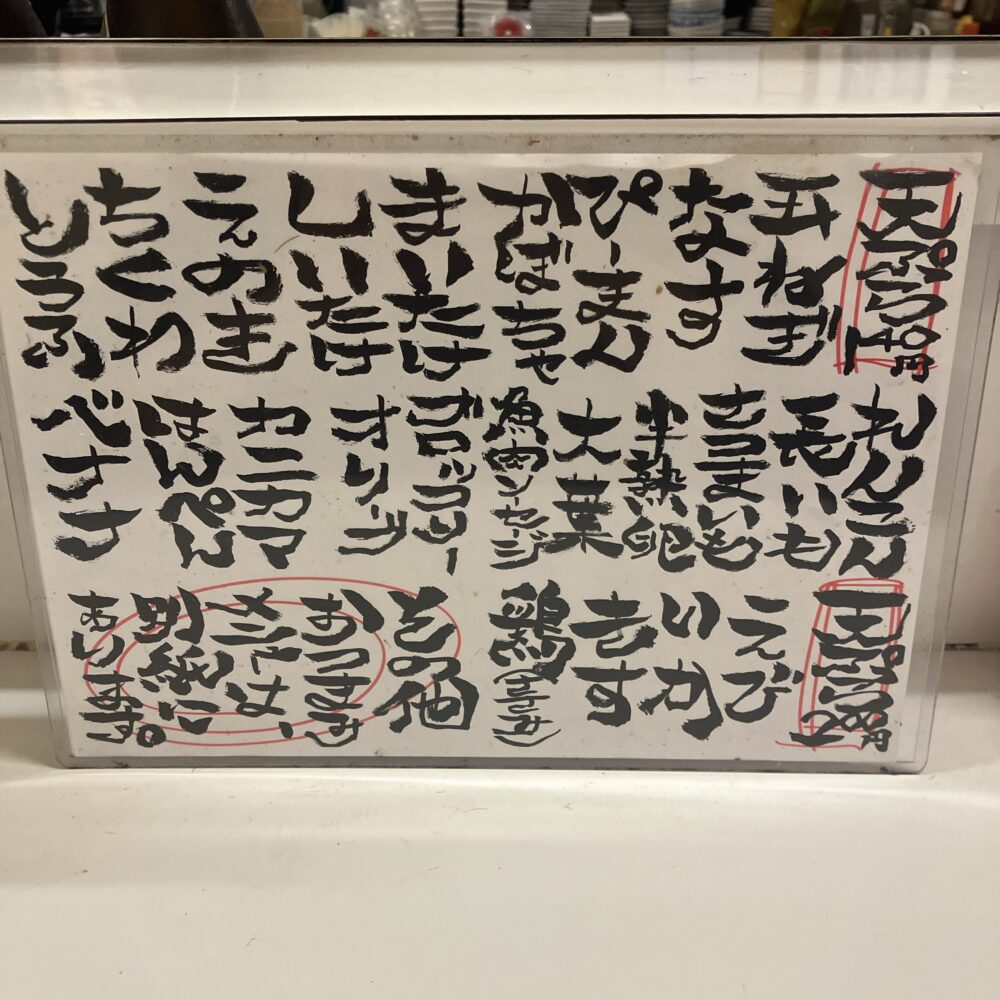 天ぷら140円
玉ねぎ
なす
ぴーまん
かぼちゃ
まいたけ
しいたけ
えのき
ちくわ
とうふ
れんこん
長いも
さつまいも
半熟卵
大葉
魚肉ソーセージ
ブロッコリー
オリーブ
カニカマ
はんぺん
べささ
天ぷら200円
えび
いか
きす
鶏(ささみ)
その他
おつまみ
メニューは、
別紙に
あります。